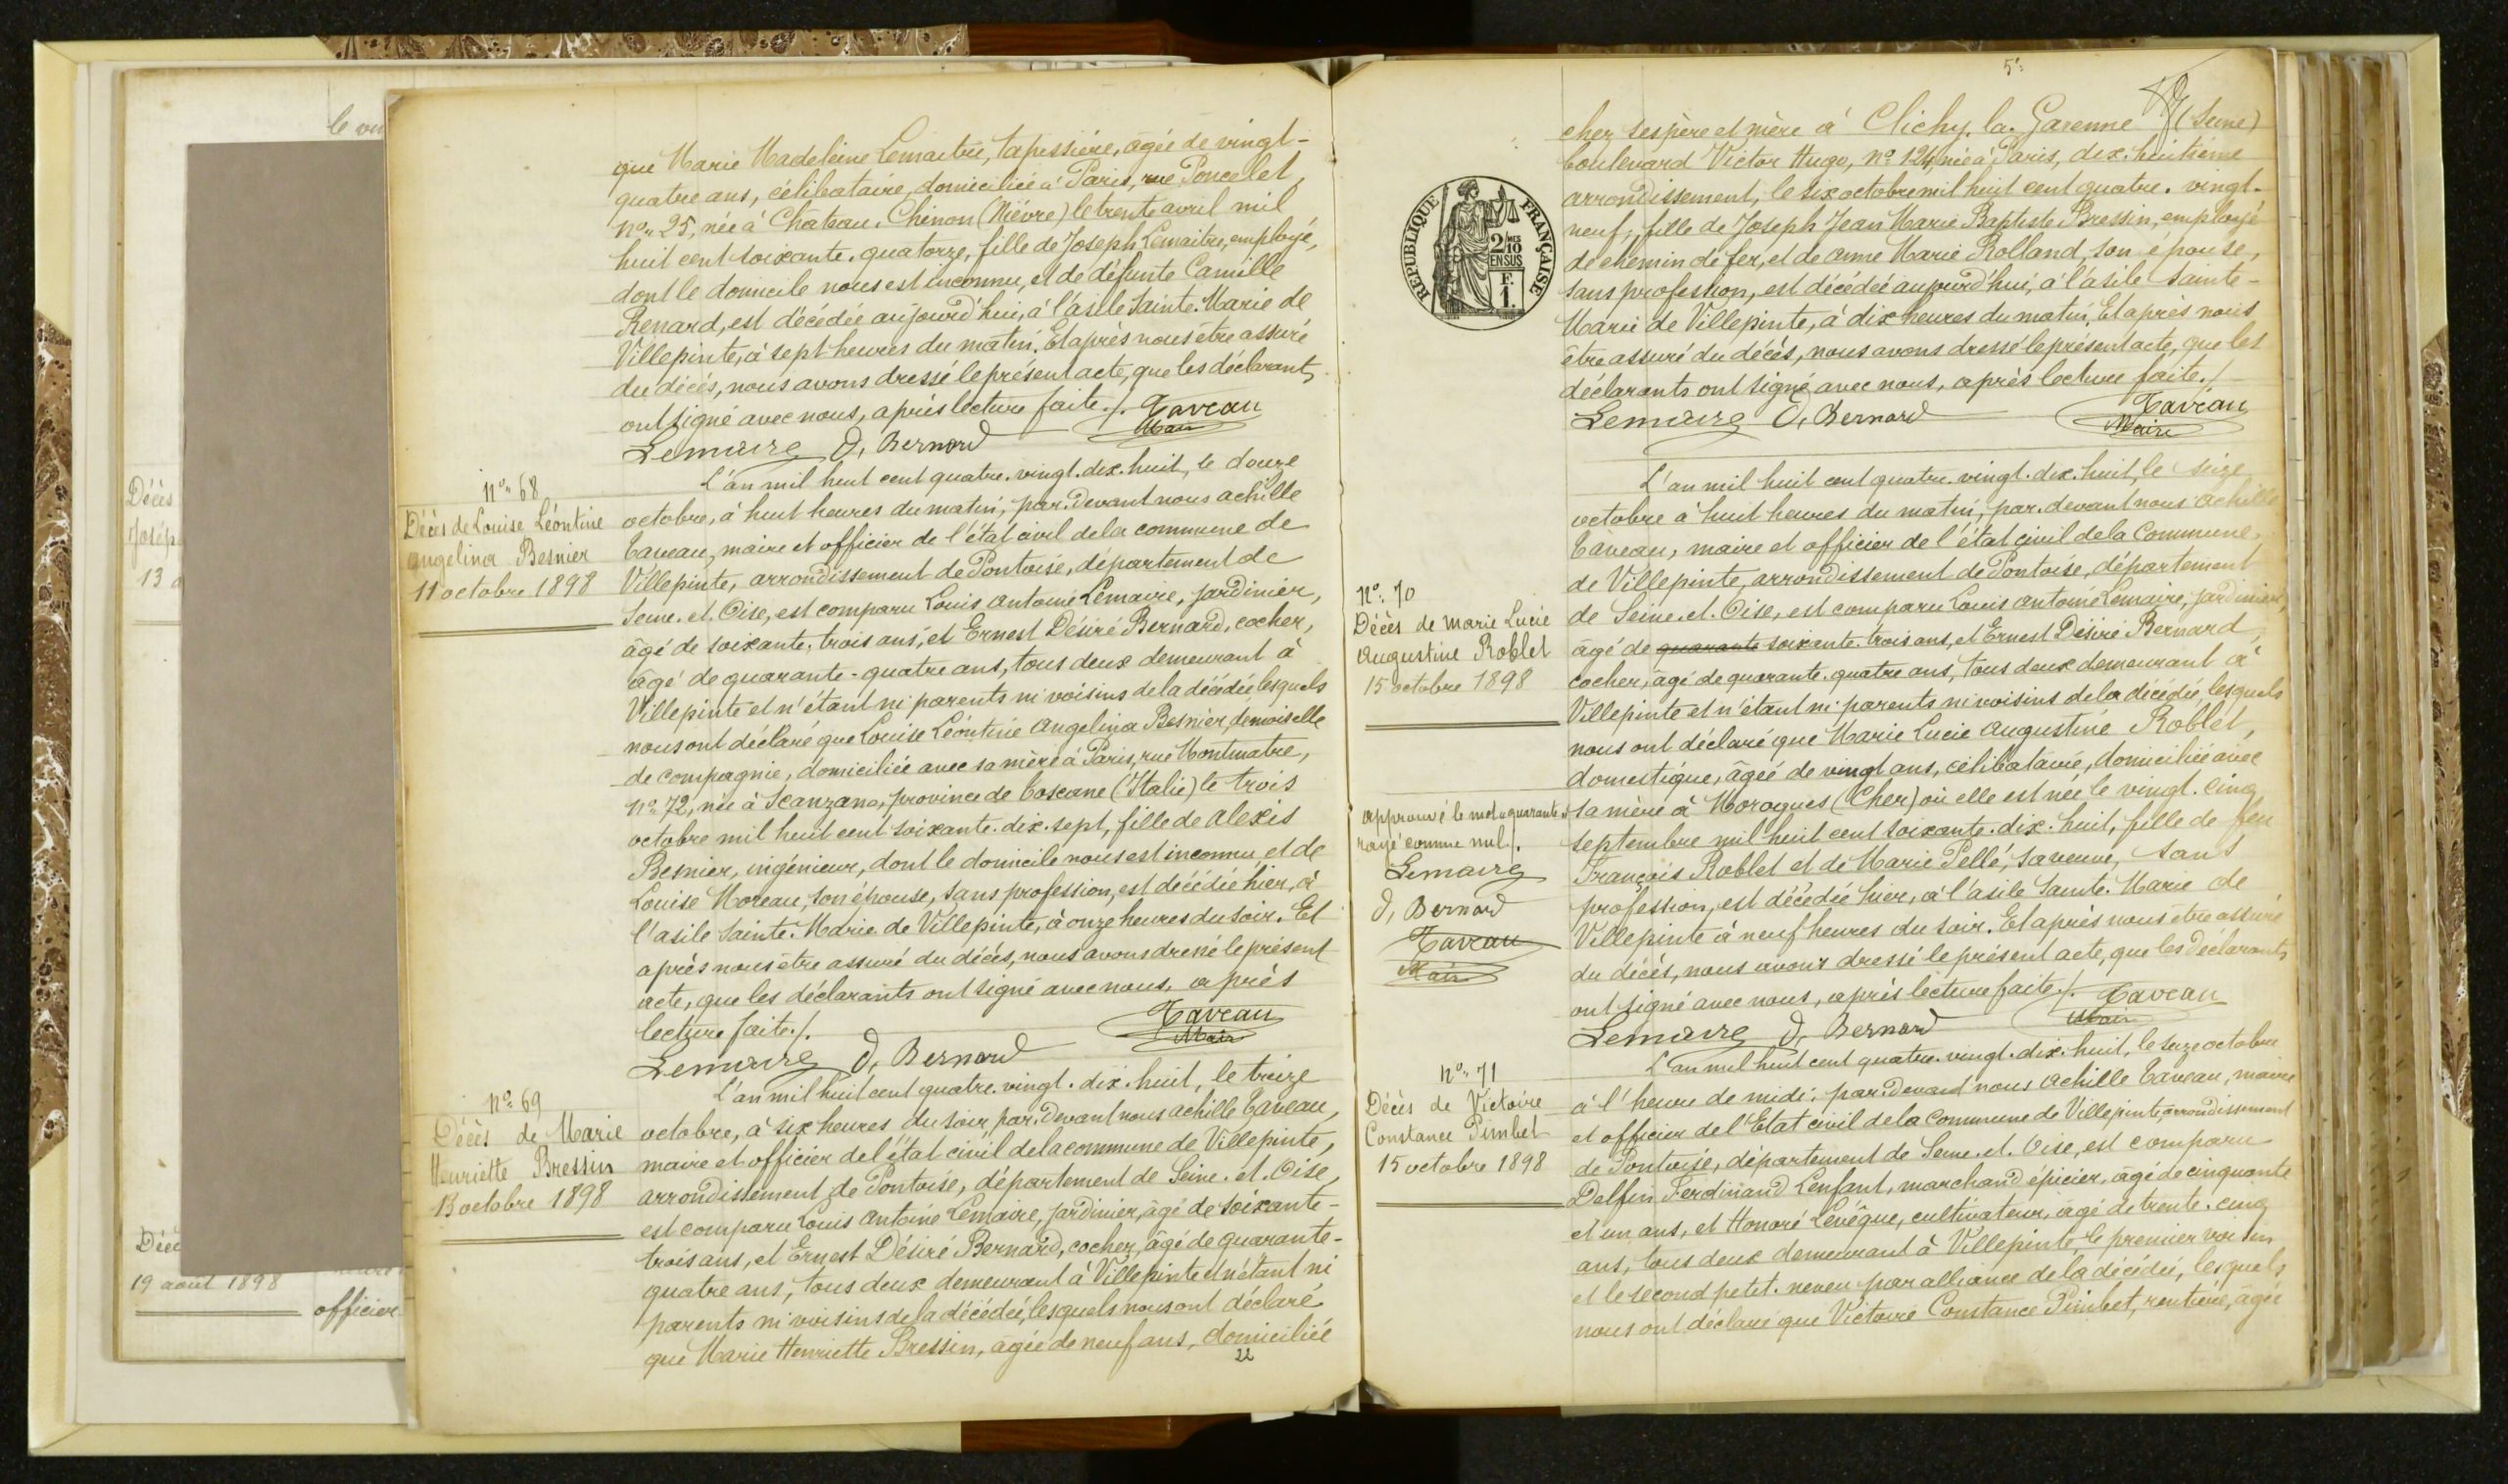 le vu
Décès
Josép
13 a
Déc
19 août 1898
officier
que Marie Madeleine Lemaitre, tapissière, âgée de vingt-
quatre ans, célibataire, domiciliée à Paris, rue Poncelet,
no. 25, née à Chateau. Chinon (Nièvre) le trente avril mil
huit cent soixante. quatorze, fille de Joseph Lemaitre, employé,
dont le domicile nous est inconnu, et de défunte Camille
Renard, est décédée aujourd'hui, à l'asile Sainte. Marie de
Villepinte, à sept heures du matin. Et après nous être assuré
du décès, nous avons dressé le présent acte, que les déclarants
ont signé avec nous, après lecture faite./. Taveau
Lemaire D, Bernard Maire
no. 68
Décès de Louise Léontine
Angelina Besnier
11 octobre 1898
L'an mil huit cent quatre. vingt. dix. huit, le douze
octobre, à huit heures du matin, par. devant nous Achille
Taveau, maire et officier de l'état civil de la commune de
Villepinte, arrondissement de Pontoise, département de
Seine. et. Oise, est comparu Louis Antoine Lemaire, jardinier,
âgé de soixante. trois ans, et Ernest Désiré Bernard, cocher,
âgé de quarante-quatre ans, tous deux demeurant à
Villepinte et n'étant ni parents ni voisins de la décédée lesquels
nous ont déclaré que Louise Léontine Angelina Besnier, demoiselle
de compagnie, domiciliée avec sa mère à Paris, rue Montmatre,
no. 72, née à Scanzano, province de Toscane (Italie) le trois
octobre mil huit cent soixante. dix. sept, fille de Alexis
Besnier, ingénieur, dont le domicile nous est inconnu et de
Louise Moreau, son épouse, sans profession, est décédée hier, à
l'asile Sainte. Marie de Villepinte, à onze heures du soir. Et
après nous être assuré du décès, nous avons dressé le présent
acte, que les déclarants ont signé avec nous, après
lecture faite./. Taveau
Lemaire D, Bernard Maire
no. 69
Décès de Marie
Henriette Bressin
13 octobre 1898
L'an mil huit cent quatre. vingt. dix. huit, le treize
octobre, à six heures du soir, par. devant nous Achille Taveau,
maire et officier de l'état civil de la commune de Villepinte,
arrondissement de Pontoise, département de Seine. et. Oise,
est comparu Louis Antoine Lemaire, jardinier, âgé de soixante-
trois ans, et Ernest Désiré Bernard, cocher, âgé de quarante-
quatre ans, tous deux demeurant à Villepinte et n'étant ni
parents ni voisins de la décédée, lesquels nous ont déclaré
que Marie Henriette Bressin, âgée de neuf ans, domiciliée
22
chez ses père et mère à Clichy. la. Garenne (Seine)
boulevard Victor Hugo, no. 124, née à Paris, dix. huitième
arrondissement, le six octobre mil huit cent quatre. vingt-
neuf, fille de Joseph Jean Marie Baptiste Bressin, employé
de chemin de fer, et de Anne Marie Rolland, son épouse,
sans profession, est décédée aujourd'hui, à l'asile Sainte-
Marie de Villepinte, à dix heures du matin. Et après nous
être assuré du décès, nous avons dressé le présent acte, que les
déclarants ont signé avec nous, après lecture faite./.
Lemaire D, Bernard Taveau
Maire
RÉPUBLIQUE FRANÇAISE
2/10 MES
EN SUS
F.
1.
L'an mil huit cent quatre. vingt. dix. huit, le seize
octobre à huit heures du matin, par. devant nous Achille
Taveau, maire et officier de l'état civil de la Commune,
de Villepinte, arrondissement de Pontoise, département
de Seine. et. Oise, est comparu Louis Antoine Lemaire, jardinier,
âgé de quarante soixante. trois ans, et Ernest Désiré Bernard,
cocher, âgé de quarante. quatre ans, tous deux demeurant à
Villepinte et n'étant ni parents ni voisins de la décédée, lesquels
nous ont déclaré que Marie Lucie Augustine Roblet,
domestique, âgée de vingt ans, célibataire, domiciliée avec
sa mère à Morogues (Cher) où elle est née le vingt. cinq
septembre mil huit cent soixante. dix. huit, fille de feu
François Roblet et de Marie Pellé, sa veuve, sans
profession, est décédée hier, à l'asile Sainte. Marie de
Villepinte à neuf heures du soir. Et après nous être assuré
du décès, nous avons dressé le présent acte, que les déclarants
ont signé avec nous, après lecture faite./. Taveau
Lemaire D, Bernard Maire
no. 70
Décès de Marie Lucie
Augustine Roblet
15 octobre 1898
approuvé le mot "quarante"
rayé comme nul.
Lemaire
D, Bernard
Taveau
Maire
no. 71
Décès de Victoire
Constance Pimbet
15 octobre 1898
L'an mil huit cent quatre. vingt. dix. huit, le seize octobre
à l'heure de midi; par. devant nous Achille Taveau, maire
et officier de l'Etat civil de la Commune de Villepinte, arrondissement
de Pontoise, département de Seine. et. Oise, est comparu
Delfin Ferdinand Lenfant, marchand épicier, âgé de cinquante
et un ans, et Honoré Levêque, cultivateur, âgé de trente. cinq
ans, tous deux demeurant à Villepinte le premier voisin
et le second petit. neveu par alliance de la décédée, lesquels
nous ont déclaré que Victoire Constance Pimbet, rentière, âgée